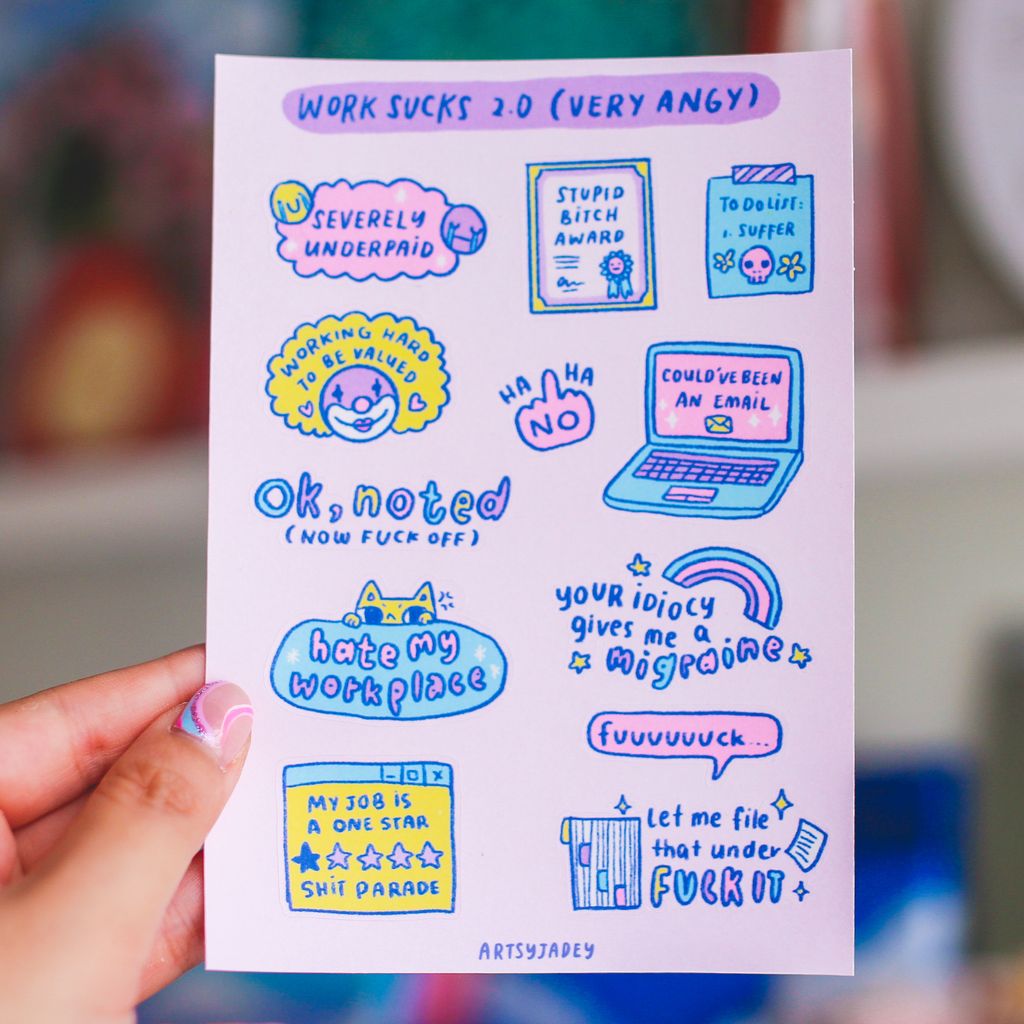 WORK SUCKS 2.0 (VERY ANGY)
SEVERELY
UNDERPAID
STUPID
BITCH
AWARD
TO DO LIST:
1. SUFFER
WORKING HARD
TO BE VALUED
HA HA
NO
COULD'VE BEEN
AN EMAIL
Ok, noted
(NOW FUCK OFF)
hate my
workplace
YOUR iDiOCY
gives me a
migraine
fuuuuuuck...
MY JOB IS
A ONE STAR
SHIT PARADE
Let me file
that under
FUCK IT
ARTSYJADEY